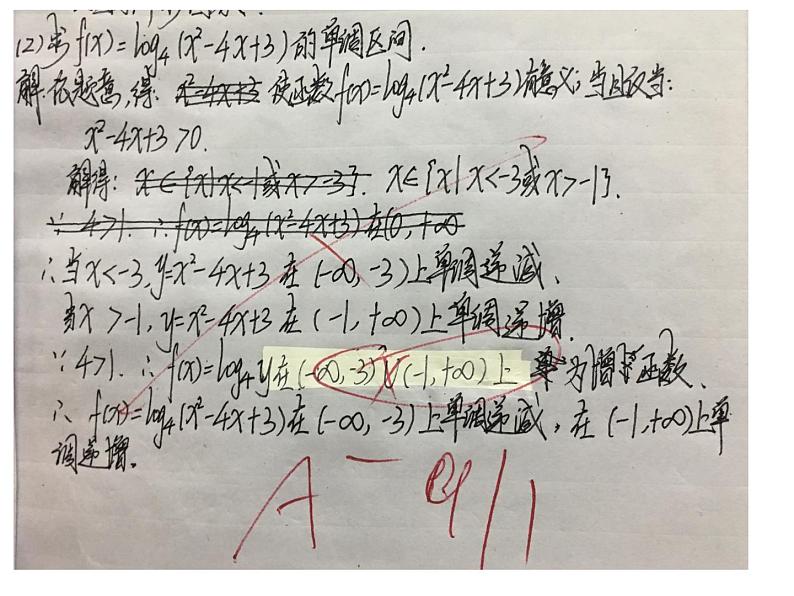 (2)求f(x)=log₄(x²-4x+3)的单调区间.
解:依题意,得: x²-4x+3 使函数f(x)=log₄(x²-4x+3)有意义;当且仅当:
x²-4x+3>0.
解得: x∈{x|x<-1或x>-3}. x∈{x|x<-3或x>-1}.
∵ 4>1. ∴ f(x)=log₄(x²-4x+3)在(0,+∞
∴当x<-3,y=x²-4x+3 在 (-∞,-3)上单调递减、
当x>-1,y=x²-4x+3 在 (-1,+∞)上单调递增.
∵4>1. ∴ f(x)=log₄y在(-∞,-3)∪(-1,+∞)上 为增函数、
∴ f(x)=log₄(x²-4x+3)在(-∞,-3)上单调递减,在(-1,+∞)上单
调递增.
A⁻ 9/1